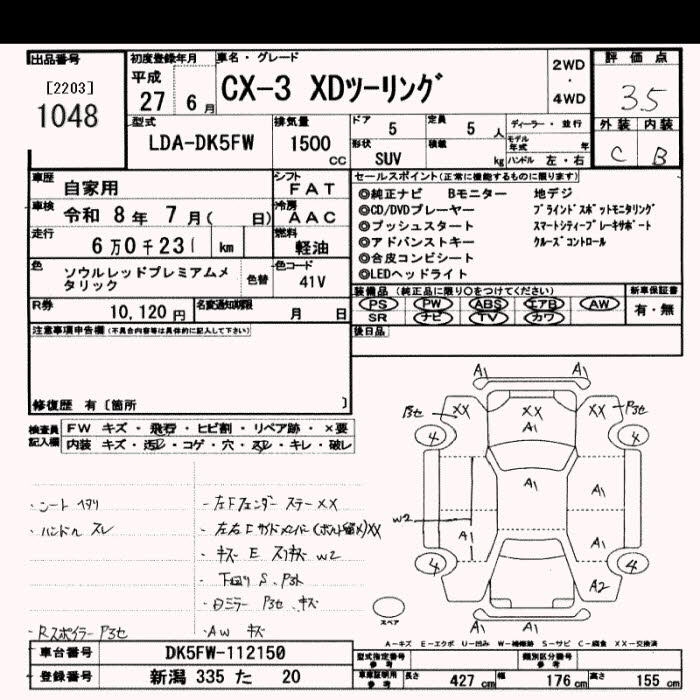 出品番号
[2203]
1048
初度登録年月
平成
27 6月
車名・グレード
CX-3 XDツーリング
2WD
・
4WD
評価点
3.5
外装 内装
C B
型式
LDA-DK5FW
排気量
1500
cc
ドア 5
定員 5 人
形状
SUV
積載
kg
ディーラー・並行
モデル年式 年
ハンドル 左・右
車歴
自家用
車検
令和 8年 7月( 日)
走行
6万0千231 km
シフト
FAT
冷房
AAC
燃料
軽油
色
ソウルレッドプレミアムメタリック
色替
色コード
41V
R券
10,120円
名変通知期限
月 日
セールスポイント(正常に機能するものに限ります)
◎純正ナビ Bモニター 地デジ
◎CD/DVDプレーヤー ブラインドスポットモニタリング
◎プッシュスタート スマートシティーブレーキサポート
◎アドバンストキー クルーズコントロール
◎合皮コンビシート
◎LEDヘッドライト
装備品 (純正品に限り○をつけてください)
PS PW ABS エアB AW
SR ナビ TV カワ
新車保証書
有・無
後日品
注意事項申告欄(不具合内容等は具体的に記入して下さい)
修復歴 有〔箇所 〕
検査員記入欄
FW キズ・飛石・ヒビ割・リペア跡・×要
内装 キズ・汚レ・コゲ・穴・スレ・キレ・破レ
・シート ヘタリ
・ハンドル スレ
・Rスポイラー P3セ
・左Fフェンダー ステー XX
・左右Fサイドメンバー(ボルト留メ)XX
・キズ E スリキズ W2
・下回り S、P3ト
・ロミラー P3セ、キズ
・AW キズ
A1 A1
P3セ XX XX XX P3セ
A1
4 4
A1 A1
W2
A1 A1
4 4
A2
A1 A1
スペア
A-キズ E-エクボ U-凹み W-補修跡 S-サビ C-腐食 XX-交換済
車台番号
DK5FW-112150
登録番号
新潟 335 た 20
型式指定番号
参考
類別区分番号
参考
車庫証明用
参考
長さ 427 cm
幅 176 cm
高さ 155 cm